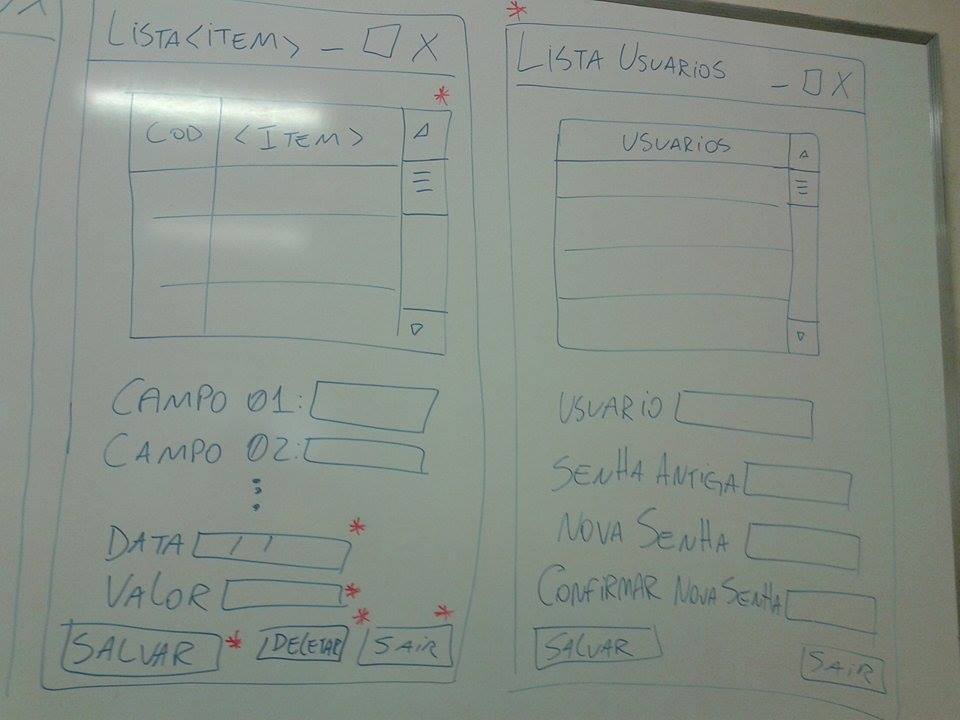 LISTA <ITEM> _ X
*
COD <ITEM>
CAMPO 01:
CAMPO 02:
DATA / / *
VALOR *
SALVAR * DELETAR * SAIR *
*
LISTA USUARIOS _ X
USUARIOS
USUARIO
SENHA ANTIGA
NOVA SENHA
CONFIRMAR NOVA SENHA
SALVAR SAIR